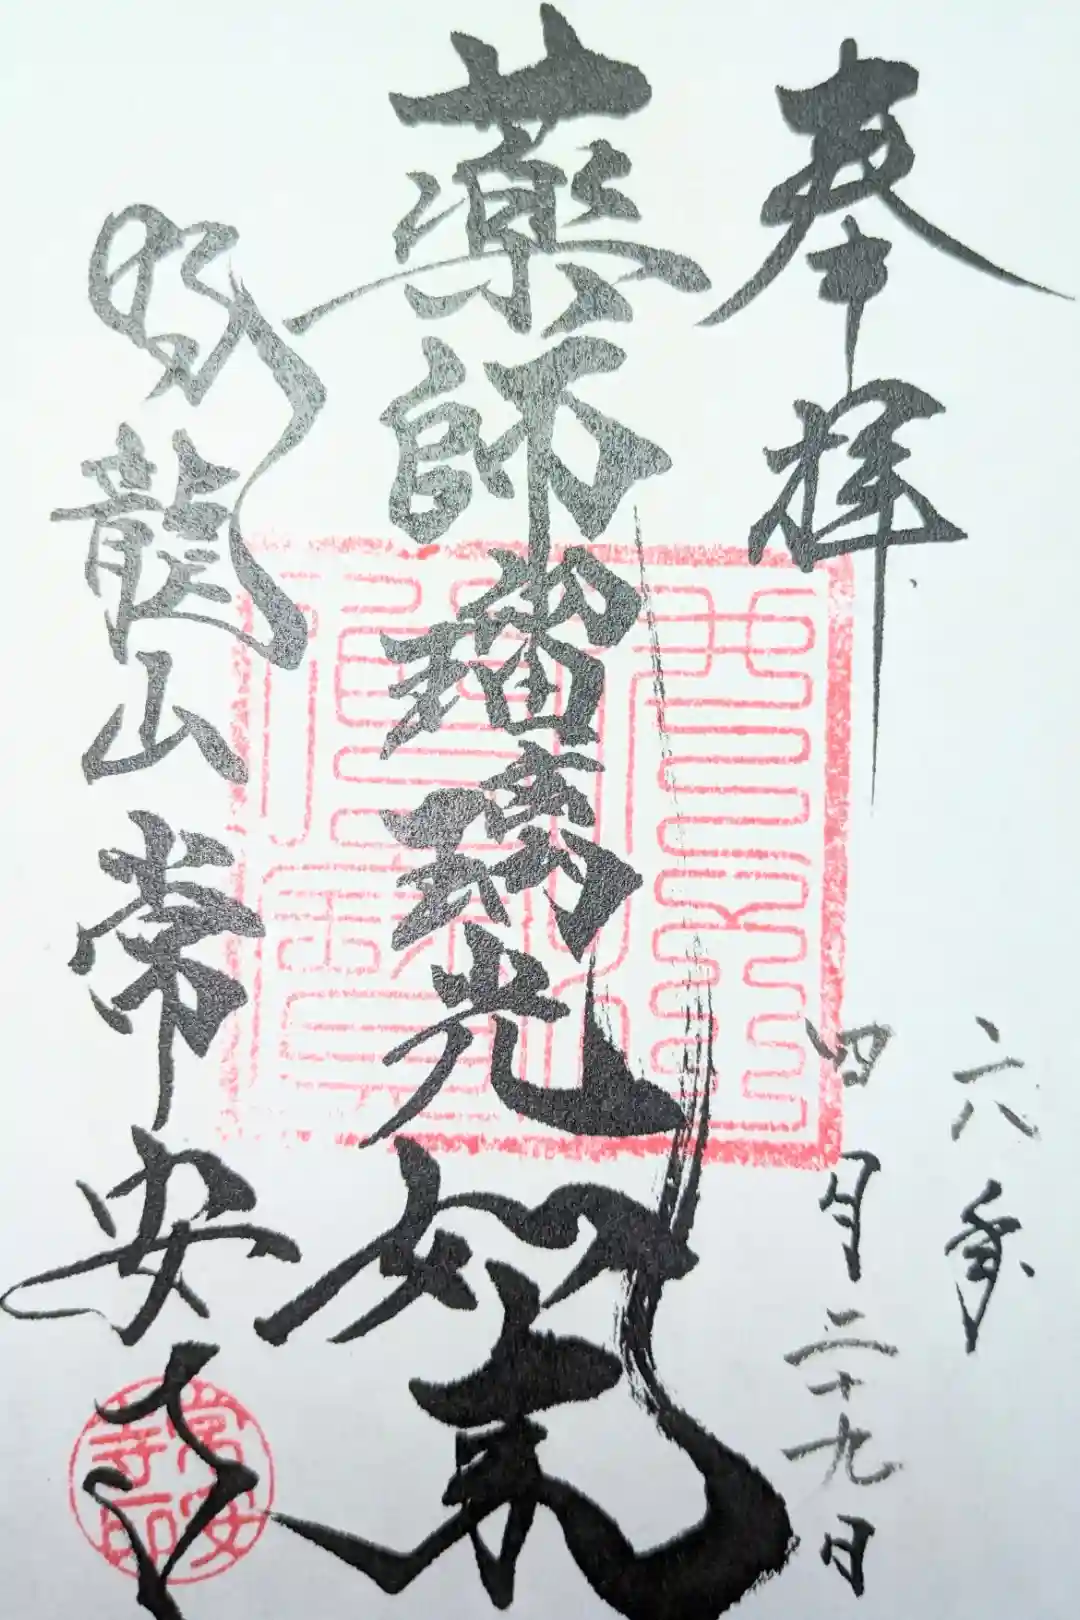 奉拝
六年
四月二十九日
薬師瑠璃光如来
龍山常安寺
常安寺印